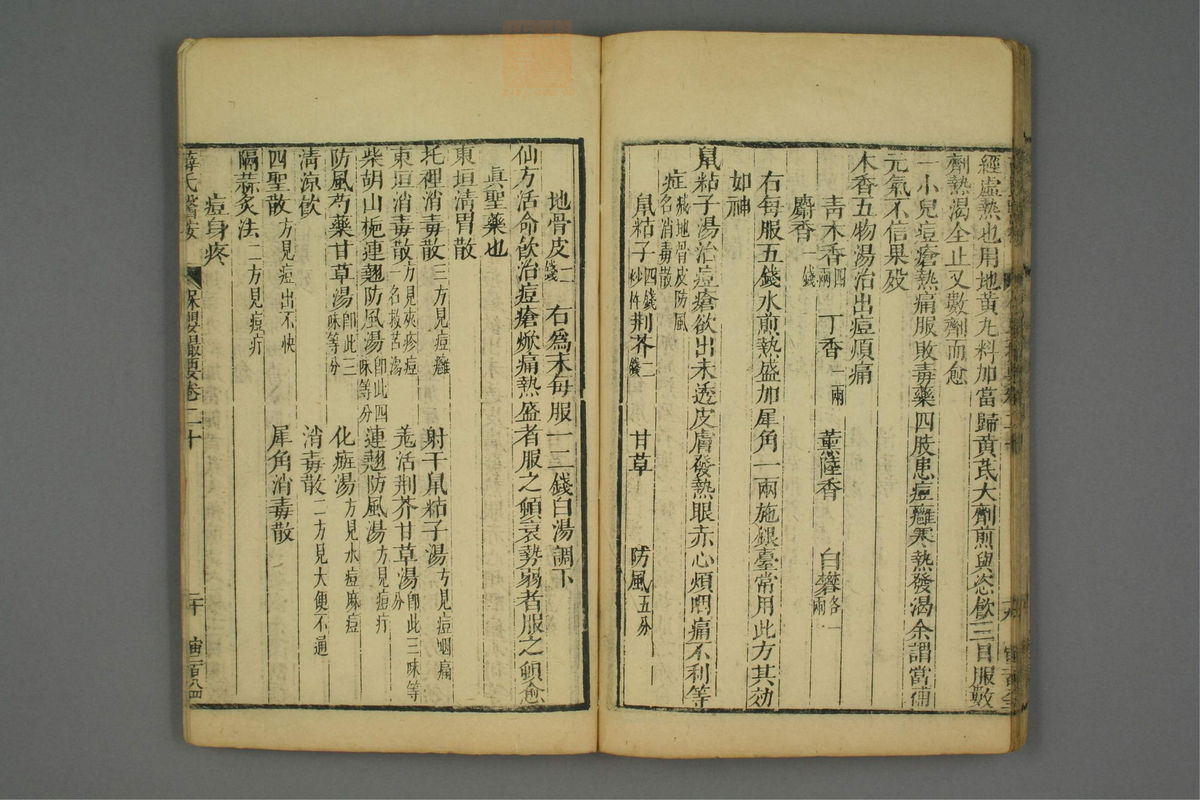 經虛熱也用地黃丸料加當歸黃芪大劑煎與恣飲三日服數
劑熱渴全止又數劑而愈
一小兒痘瘡熱痛服敗毒藥四肢患痘癰寒熱發渴余謂當補
元氣不信果歿
木香五物湯治出痘煩痛
青木香四兩 丁香一兩 薰陸香 白礬各一兩
麝香一錢
右每服五錢水煎熱盛加犀角一兩施銀臺常用此方其効
如神
鼠粘子湯治痘瘡欲出未透皮膚發熱眼赤心煩咽痛不利等
症秫地骨皮防風名消毒散
鼠粘子四錢炒杵 荆芥二錢 甘草 防風五分
地骨皮二錢 右爲末每服一二錢白湯調下
仙方活命飲治痘瘡焮痛熱盛者服之頓衰勢弱者服之頓愈
眞聖藥也
東垣清胃散
托裡消毒散三方見痘癰 射干鼠粘子湯方見痘咽痛
東垣消毒散方見夾疹痘一名救苦湯 羌活荆芥甘草湯卽此三味等分
柴胡山梔連翹防風湯卽此四味等分 連翹防風湯方見痘疔
防風芍藥甘草湯卽此三味等分 化斑湯方見水痘麻痘
清涼飲 消毒散二方見大便不通
四聖散方見痘出不快 犀角消毒散
隔蒜灸法二方見痘疔
痘身疼
薛氏醫按 保嬰撮要卷二十 二十